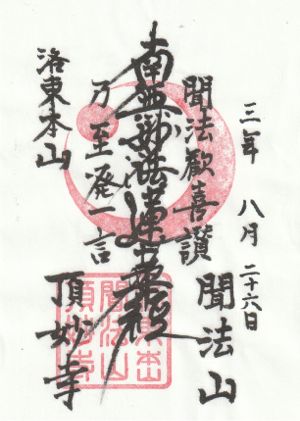 三年 八月 二十六日
聞法山
聞法歓喜讃
南無妙法蓮華経
乃至発一言
頂妙寺
洛東本山
本山
聞法山
頂妙寺